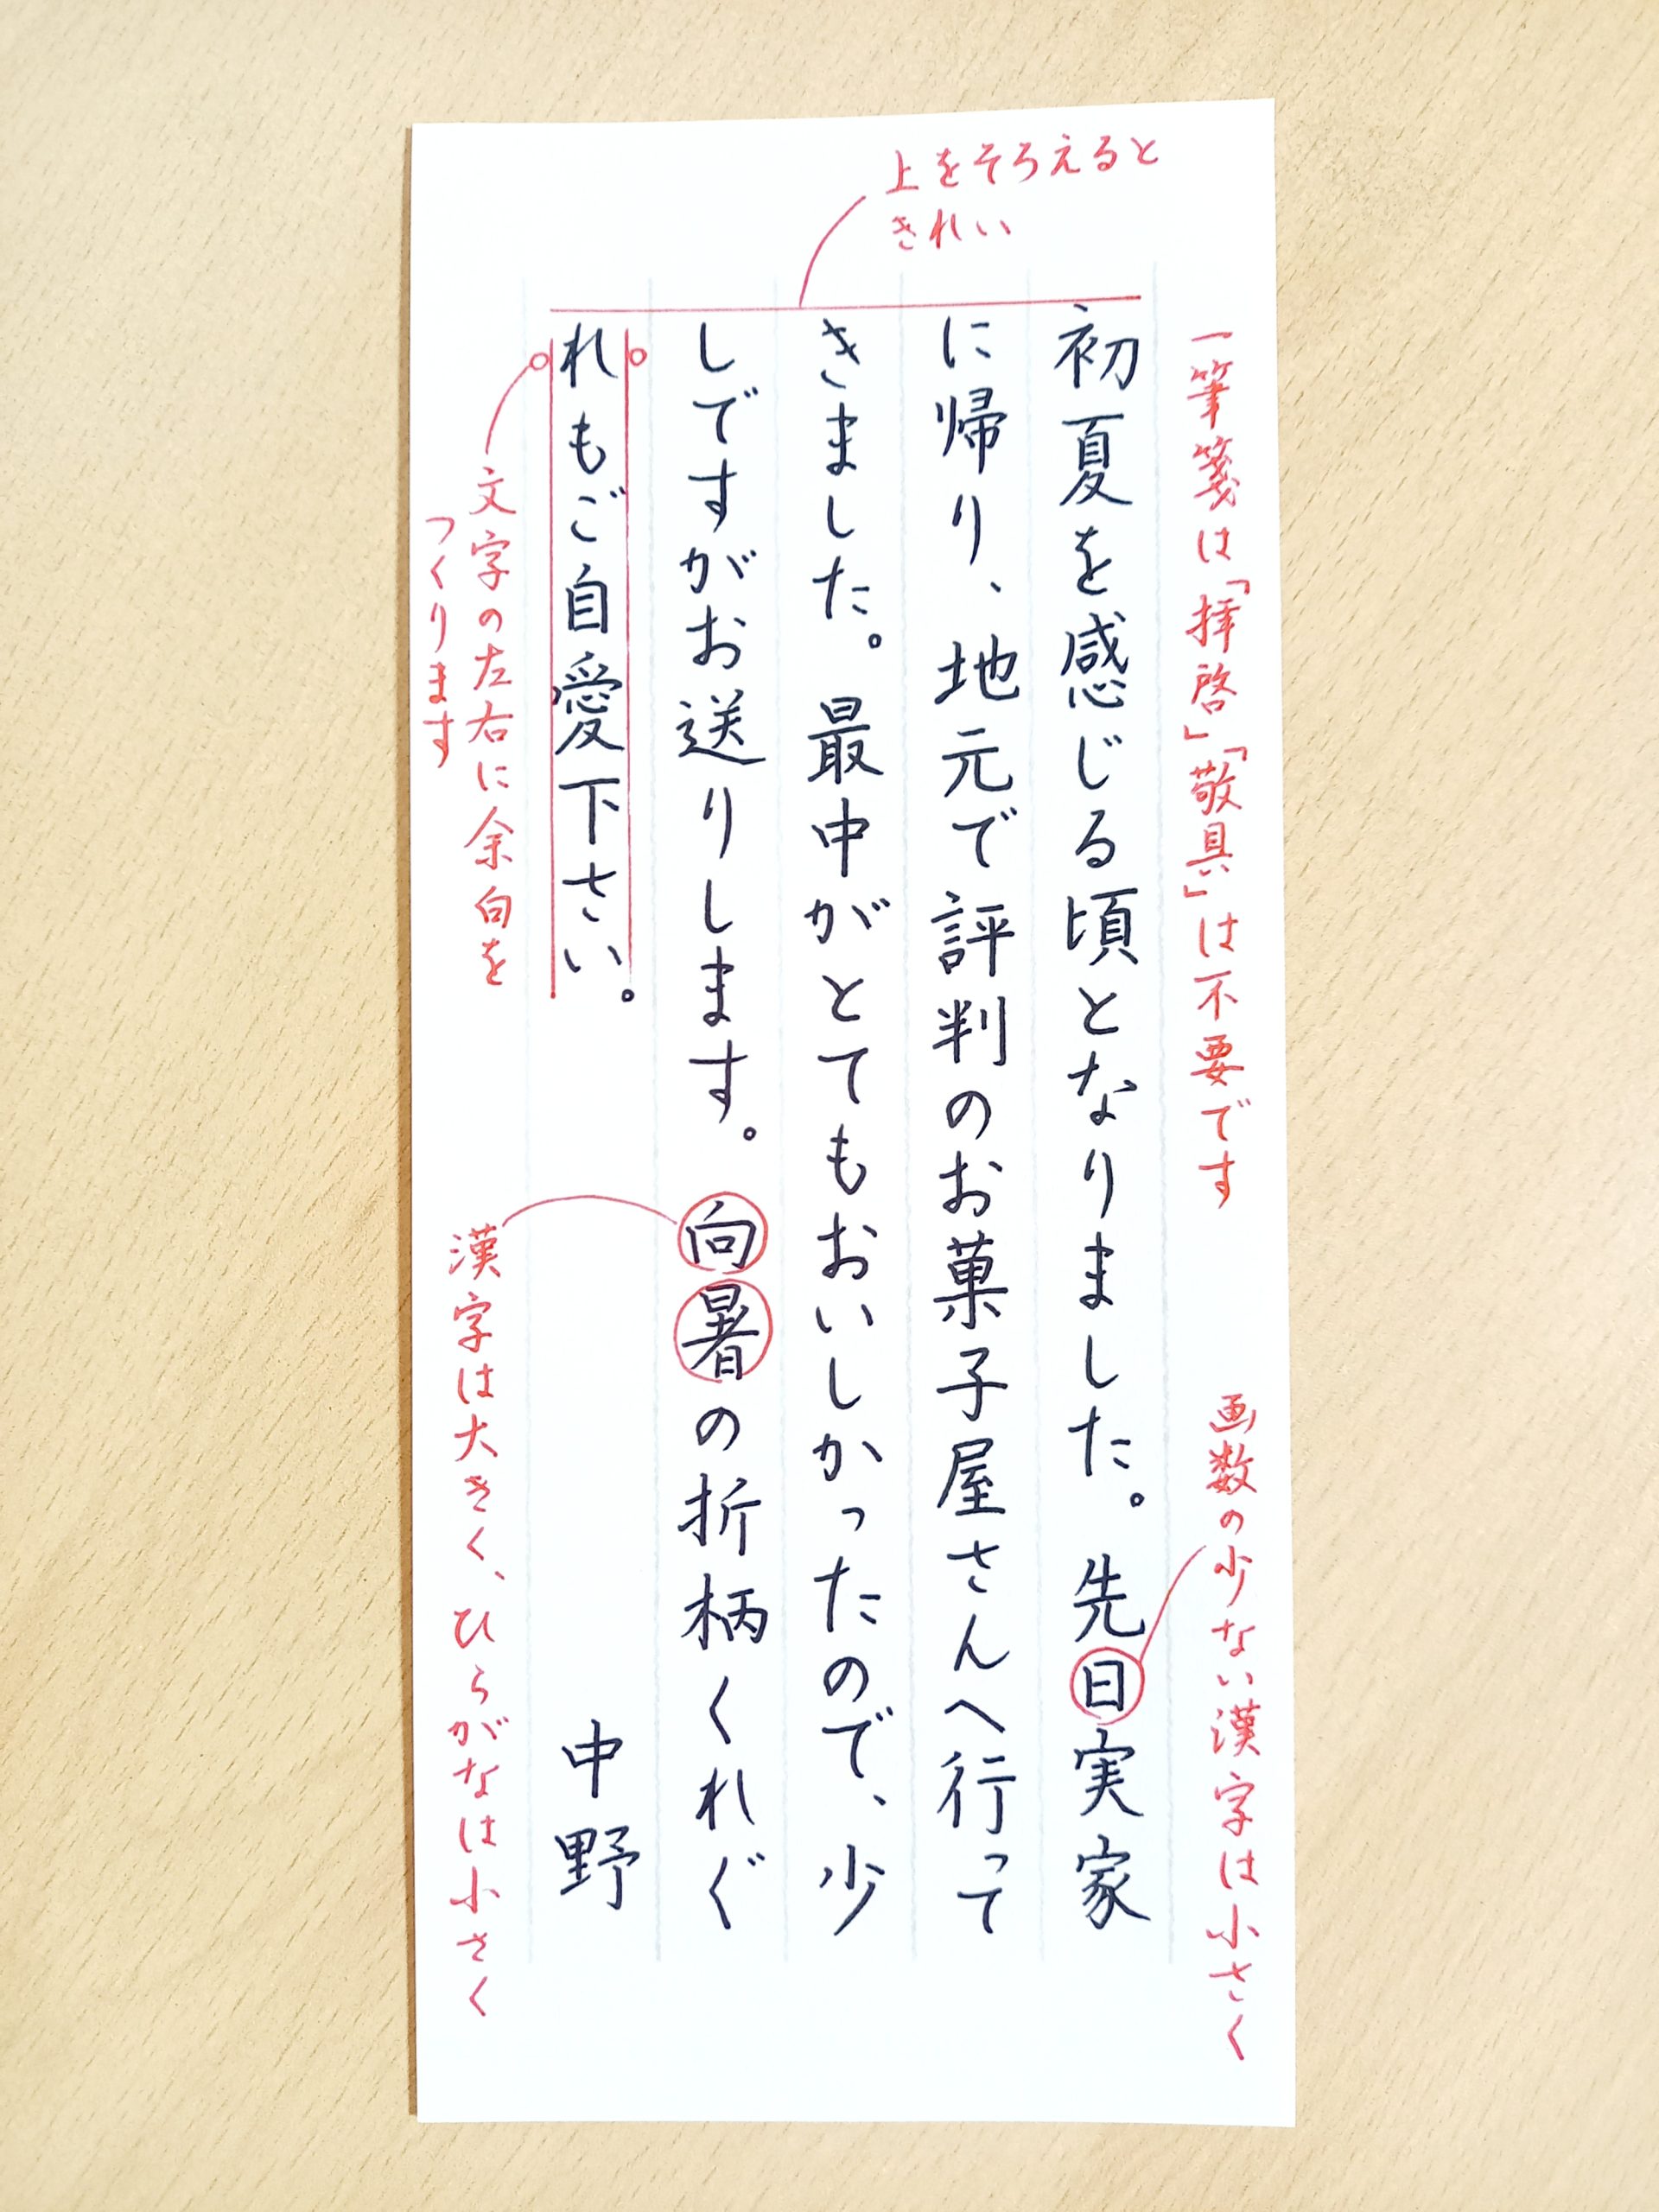 上をそろえると
きれい
一筆箋は「拝啓」「敬具」は不要です
画数の少ない漢字は小さく
初夏を感じる頃となりました。先日実家
に帰り、地元で評判のお菓子屋さんへ行って
きました。最中がとてもおいしかったので、少
しですがお送りします。向暑の折柄くれぐ
れもご自愛下さい。
中野
文字の左右に余白を
つくります
漢字は大きく、ひらがなは小さく